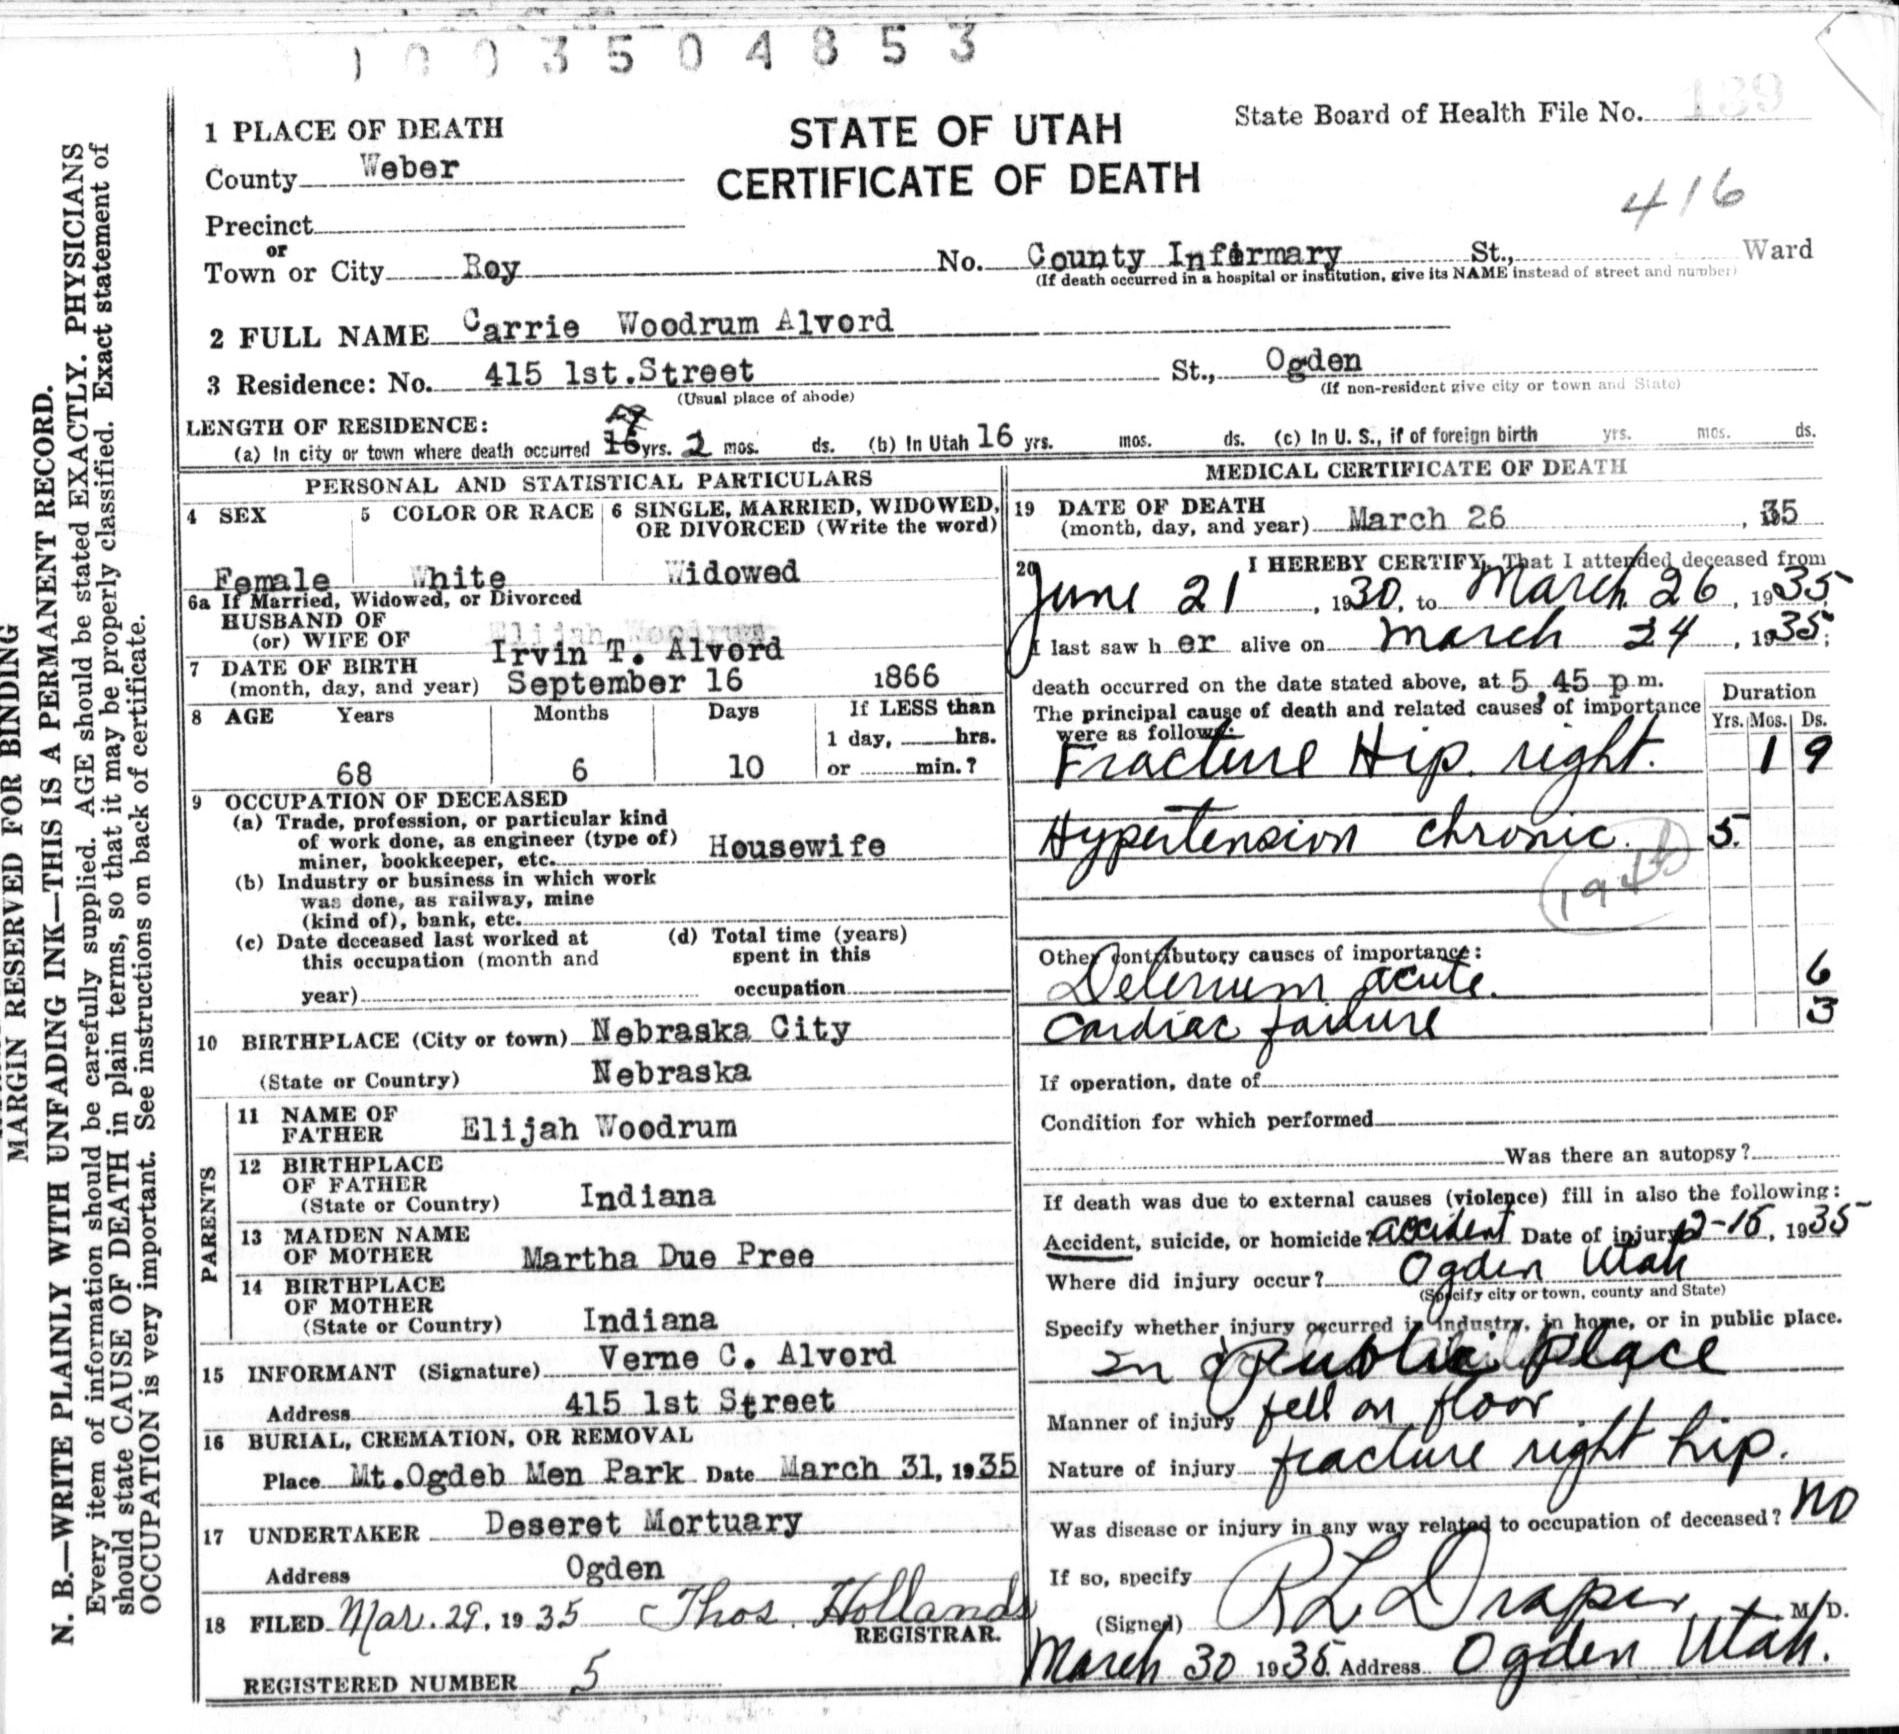 1003504853
State Board of Health File No. 139
STATE OF UTAH
CERTIFICATE OF DEATH
416
1 PLACE OF DEATH
County Weber
Precinct
or
Town or City Roy No. County Infirmary St., Ward
(If death occurred in a hospital or institution, give its NAME instead of street and number)
2 FULL NAME Carrie Woodrum Alvord
3 Residence: No. 415 1st.Street St., Ogden
(Usual place of abode) (If non-resident give city or town and State)
LENGTH OF RESIDENCE:
(a) In city or town where death occurred 16 yrs. 2 mos. ds. (b) In Utah 16 yrs. mos. ds. (c) In U. S., if of foreign birth yrs. mos. ds.
PERSONAL AND STATISTICAL PARTICULARS
4 SEX
Female
5 COLOR OR RACE
White
6 SINGLE, MARRIED, WIDOWED,
OR DIVORCED (Write the word)
Widowed
6a If Married, Widowed, or Divorced
HUSBAND OF
(or) WIFE OF Elijah Woodrum
Irvin T. Alvord
7 DATE OF BIRTH
(month, day, and year) September 16 1866
8 AGE Years Months Days If LESS than
1 day, hrs.
68 6 10 or min.?
9 OCCUPATION OF DECEASED
(a) Trade, profession, or particular kind
of work done, as engineer (type of)
miner, bookkeeper, etc. Housewife
(b) Industry or business in which work
was done, as railway, mine
(kind of), bank, etc.
(c) Date deceased last worked at
this occupation (month and
year)
(d) Total time (years)
spent in this
occupation
10 BIRTHPLACE (City or town) Nebraska City
(State or Country) Nebraska
PARENTS
11 NAME OF
FATHER Elijah Woodrum
12 BIRTHPLACE
OF FATHER
(State or Country) Indiana
13 MAIDEN NAME
OF MOTHER Martha Due Pree
14 BIRTHPLACE
OF MOTHER
(State or Country) Indiana
15 INFORMANT (Signature) Verne C. Alvord
Address 415 1st Street
16 BURIAL, CREMATION, OR REMOVAL
Place Mt.Ogdeb Men Park Date March 31, 1935
17 UNDERTAKER Deseret Mortuary
Address Ogden
18 FILED Mar. 29, 1935 Thos. Hollands
REGISTRAR.
REGISTERED NUMBER 5
MEDICAL CERTIFICATE OF DEATH
19 DATE OF DEATH
(month, day, and year) March 26, 35
20 I HEREBY CERTIFY, That I attended deceased from
June 21, 1930, to March 26, 1935,
I last saw her alive on March 24, 1935;
death occurred on the date stated above, at 5,45 p m.
The principal cause of death and related causes of importance
were as follows:
Duration
Yrs. Mos. Ds.
Fracture Hip. right. 1 9
Hypertension chronic. 5.
Other contributory causes of importance:
Delerium acute. 6
Cardiac failure 3
If operation, date of
Condition for which performed
Was there an autopsy?
If death was due to external causes (violence) fill in also the following:
Accident, suicide, or homicide? accident Date of injury 2-15, 1935
Where did injury occur? Ogden Utah
(Specify city or town, county and State)
Specify whether injury occurred in industry, in home, or in public place.
In Public Place
Manner of injury fell on floor
Nature of injury fracture right hip.
Was disease or injury in any way related to occupation of deceased? no
If so, specify
(Signed) R L Draper, M. D.
March 30 1935. Address Ogden Utah.
MARGIN RESERVED FOR BINDING
N. B.—WRITE PLAINLY WITH UNFADING INK—THIS IS A PERMANENT RECORD.
Every item of information should be carefully supplied. AGE should be stated EXACTLY. PHYSICIANS
should state CAUSE OF DEATH in plain terms, so that it may be properly classified. Exact statement of
OCCUPATION is very important. See instructions on back of certificate.